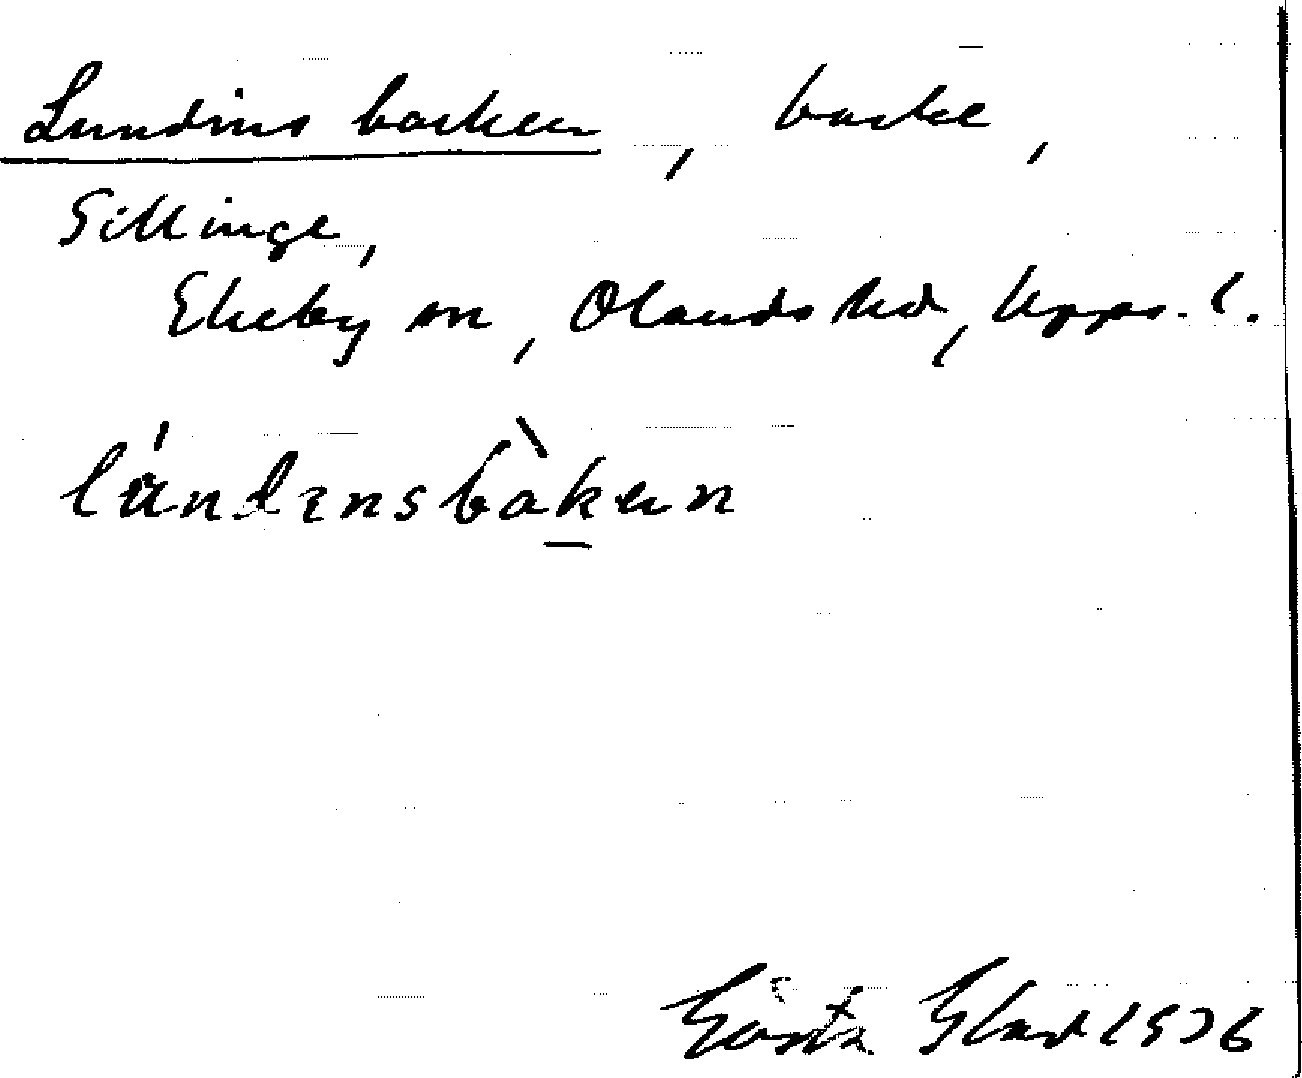 Lundins backen, backe,
Gillinge,
Ekeby sn, Olands hd, Upps. l.
lúndɪnsbàkɐn
Gösta Glad 1926